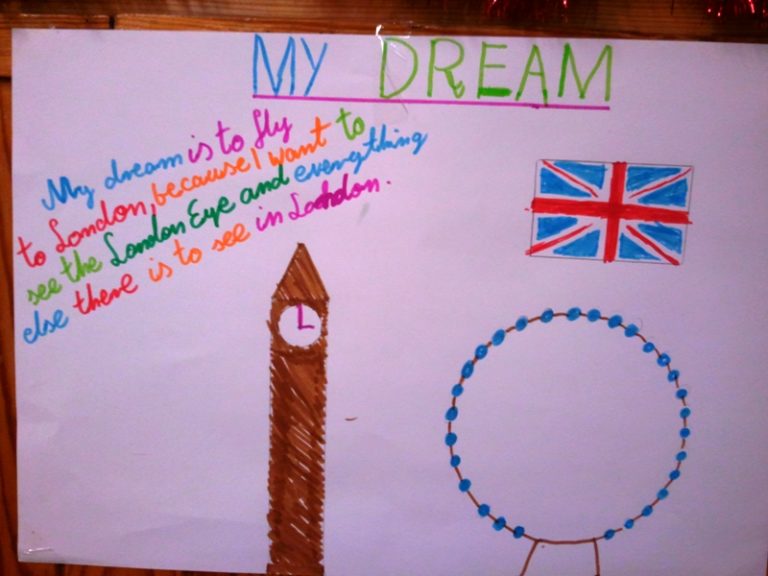 MY DREAM
My dream is to fly
to London, because I want to
see the London Eye and everything
else there is to see in London.